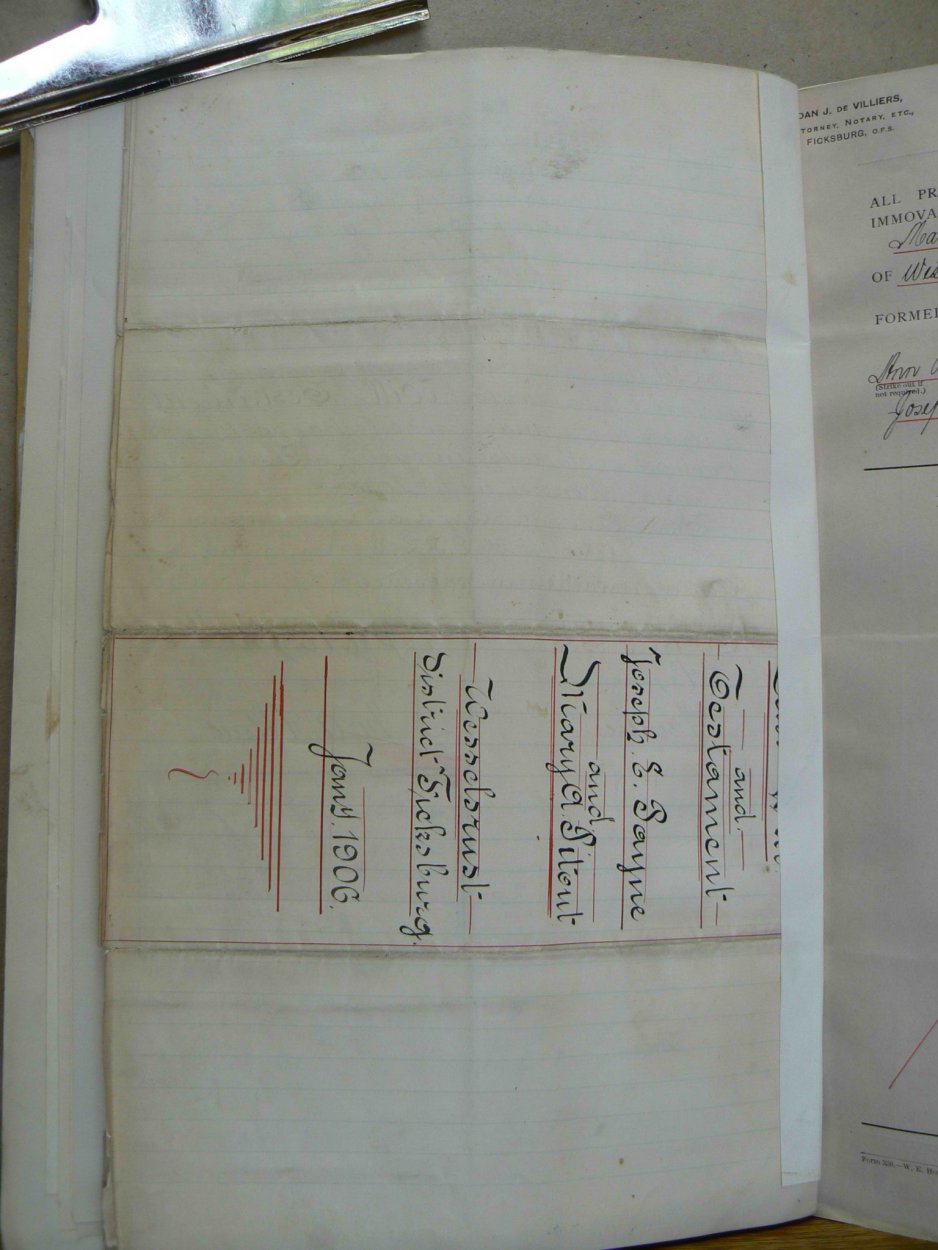 and
Testament
Joseph. E. Payne
and
Mary A. Pitout
Wesselsrust
District Ficksburg.
Jany. 1906.
DAN J. DE VILLIERS,
TORNEY, NOTARY, ETC.,
FICKSBURG, O.F.S.
ALL PR
IMMOVA
Ma
OF Wes
FORMER
Ann
(Strike out if
not required.)
Josep
Form 330.—W. E. Ho